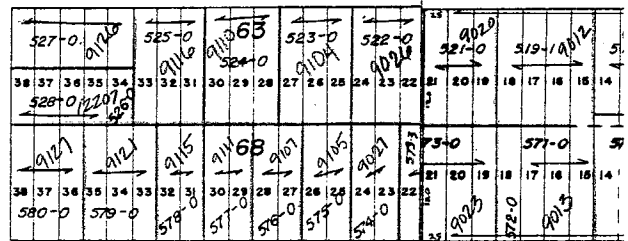 527-0 9126 525-0 9116 9110 63 524-0 523-0 9104 522-0 9026 25 521-0 9020 519-1 9012
38 37 36 35 34 33 32 31 30 29 28 27 26 25 24 23 22 21 20 19 18 17 16 15 14
528-0 12207 526-0
9127 9121 9115 9111 68 9107 9105 9027 573-3 73-0 571-0
38 37 36 35 34 33 32 31 30 29 28 27 26 25 24 23 22 21 20 19 18 17 16 15 14
580-0 579-0 578-0 577-0 576-0 575-0 574-0 25 9023 572-0 9013